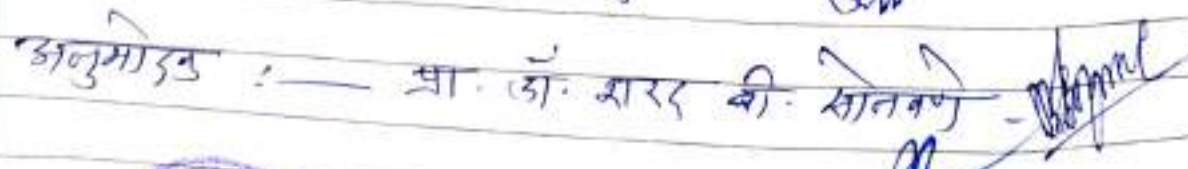 अनुमोदक :— प्रा. डॉ. शरद बी. सोनवणे -